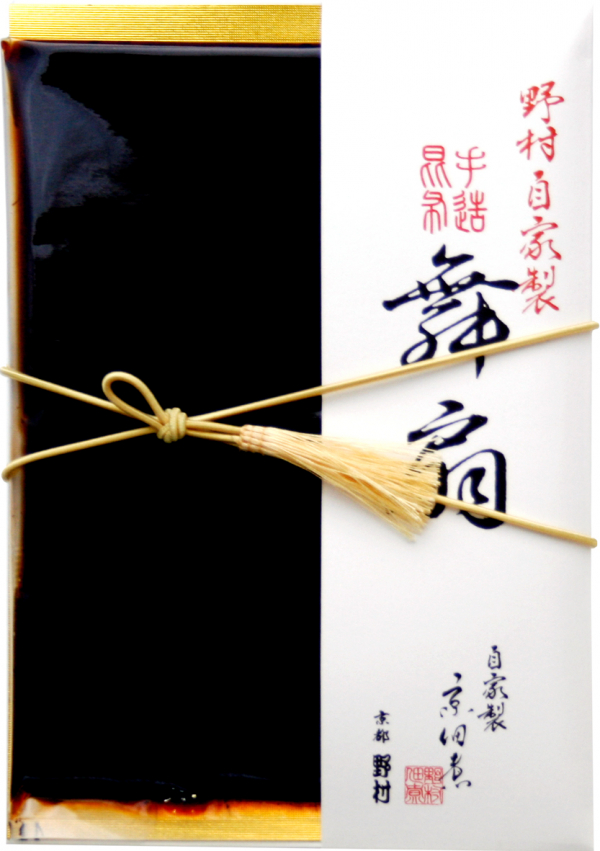 野村自家製
手造
昆布
舞扇
自家製
京佃煮
野村
佃煮
京都 野村